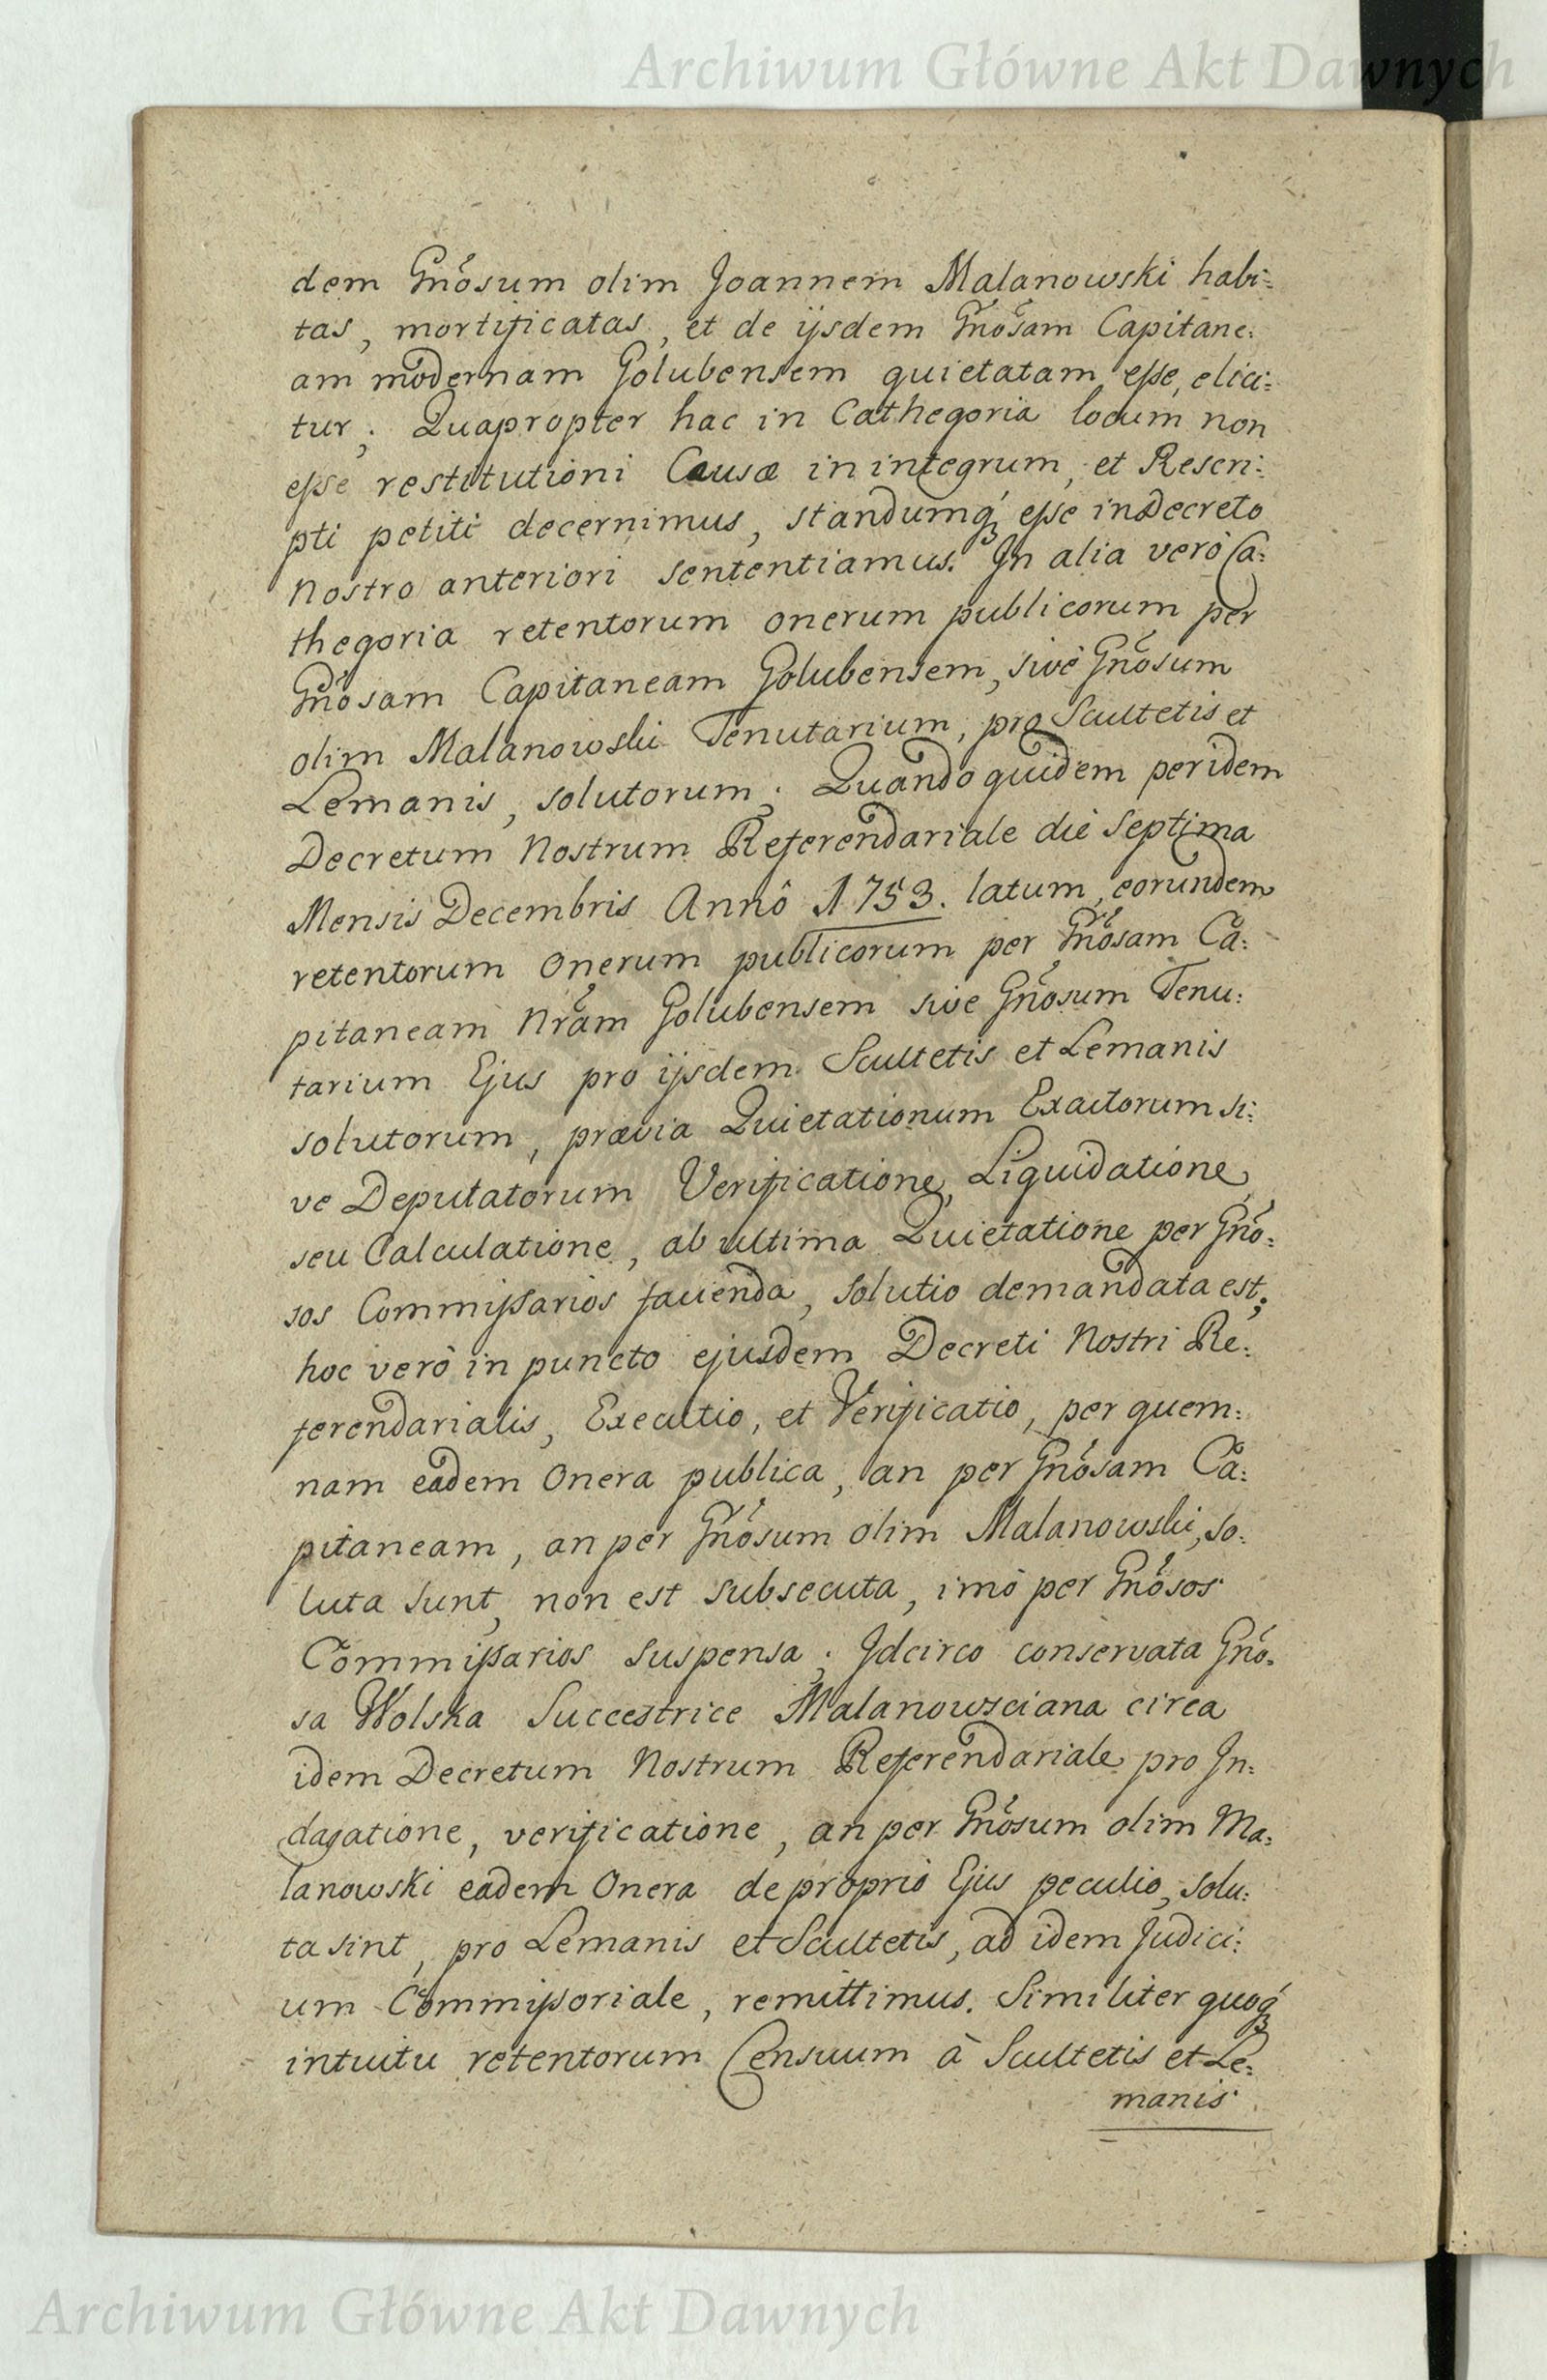 Archiwum Główne Akt Dawnych
dem Gnosum olim Joannem Malanowski habi=
tas, mortificatas, et de ijsdem Gnosam Capitane:
am modernam Golubensem quietatam esse, elici=
tur; Quapropter hac in Cathegoria locum non
esse restitutioni Causæ in integrum, et Rescri:
pti petiti decernimus, standumq́ue esse in Decreto
Nostro anteriori sententiamus. In alia verò Ca:
thegoria retentorum onerum publicorum per
Gnosam Capitaneam Golubensem, sivè Gnosum
olim Malanowski Tenutarium, pro Scultetis et
Lemanis, solutorum; Quandoquidem per idem
Decretum Nostrum Referendariale diè septima
Mensis Decembris Annô 1753. latum, eorundem
retentorum Onerum publicorum per Gnosam Ca:
pitaneam Nram Golubensem sive Gnosum Tenu:
tarium Ejus pro ijsdem Scultetis et Lemanis
solutorum, prævia Quietationum Exactorum si:
ve Deputatorum Verificatione, Liquidatione,
seu Calculatione, ab ultima Quietatione per Gno:
sos Commissarios facienda, solutio demandata est;
hoc verò in puncto ejusdem Decreti Nostri Re:
ferendarialis, Executio, et Verificatio, per quem:
nam eadem Onera publica, an per Gnosam Ca:
pitaneam, an per Gnosum olim Malanowski, so:
luta sunt, non est subsecuta, imò per Gnosos
Commissarios suspensa; Idcirco conservata Gno:
sa Wolska Succestrice Malanowsciana circa
idem Decretum Nostrum Referendariale pro In:
dagatione, verificatione, an per Gnosum olim Ma:
lanowski eadem Onera de proprio Ejus peculio, solu:
ta sint, pro Lemanis et Scultetis, ad idem Judici:
um Commissoriale, remittimus. Similiter quoq́ue
intuitu retentorum Censuum à Scultetis et Le:
manis
Archiwum Główne Akt Dawnych